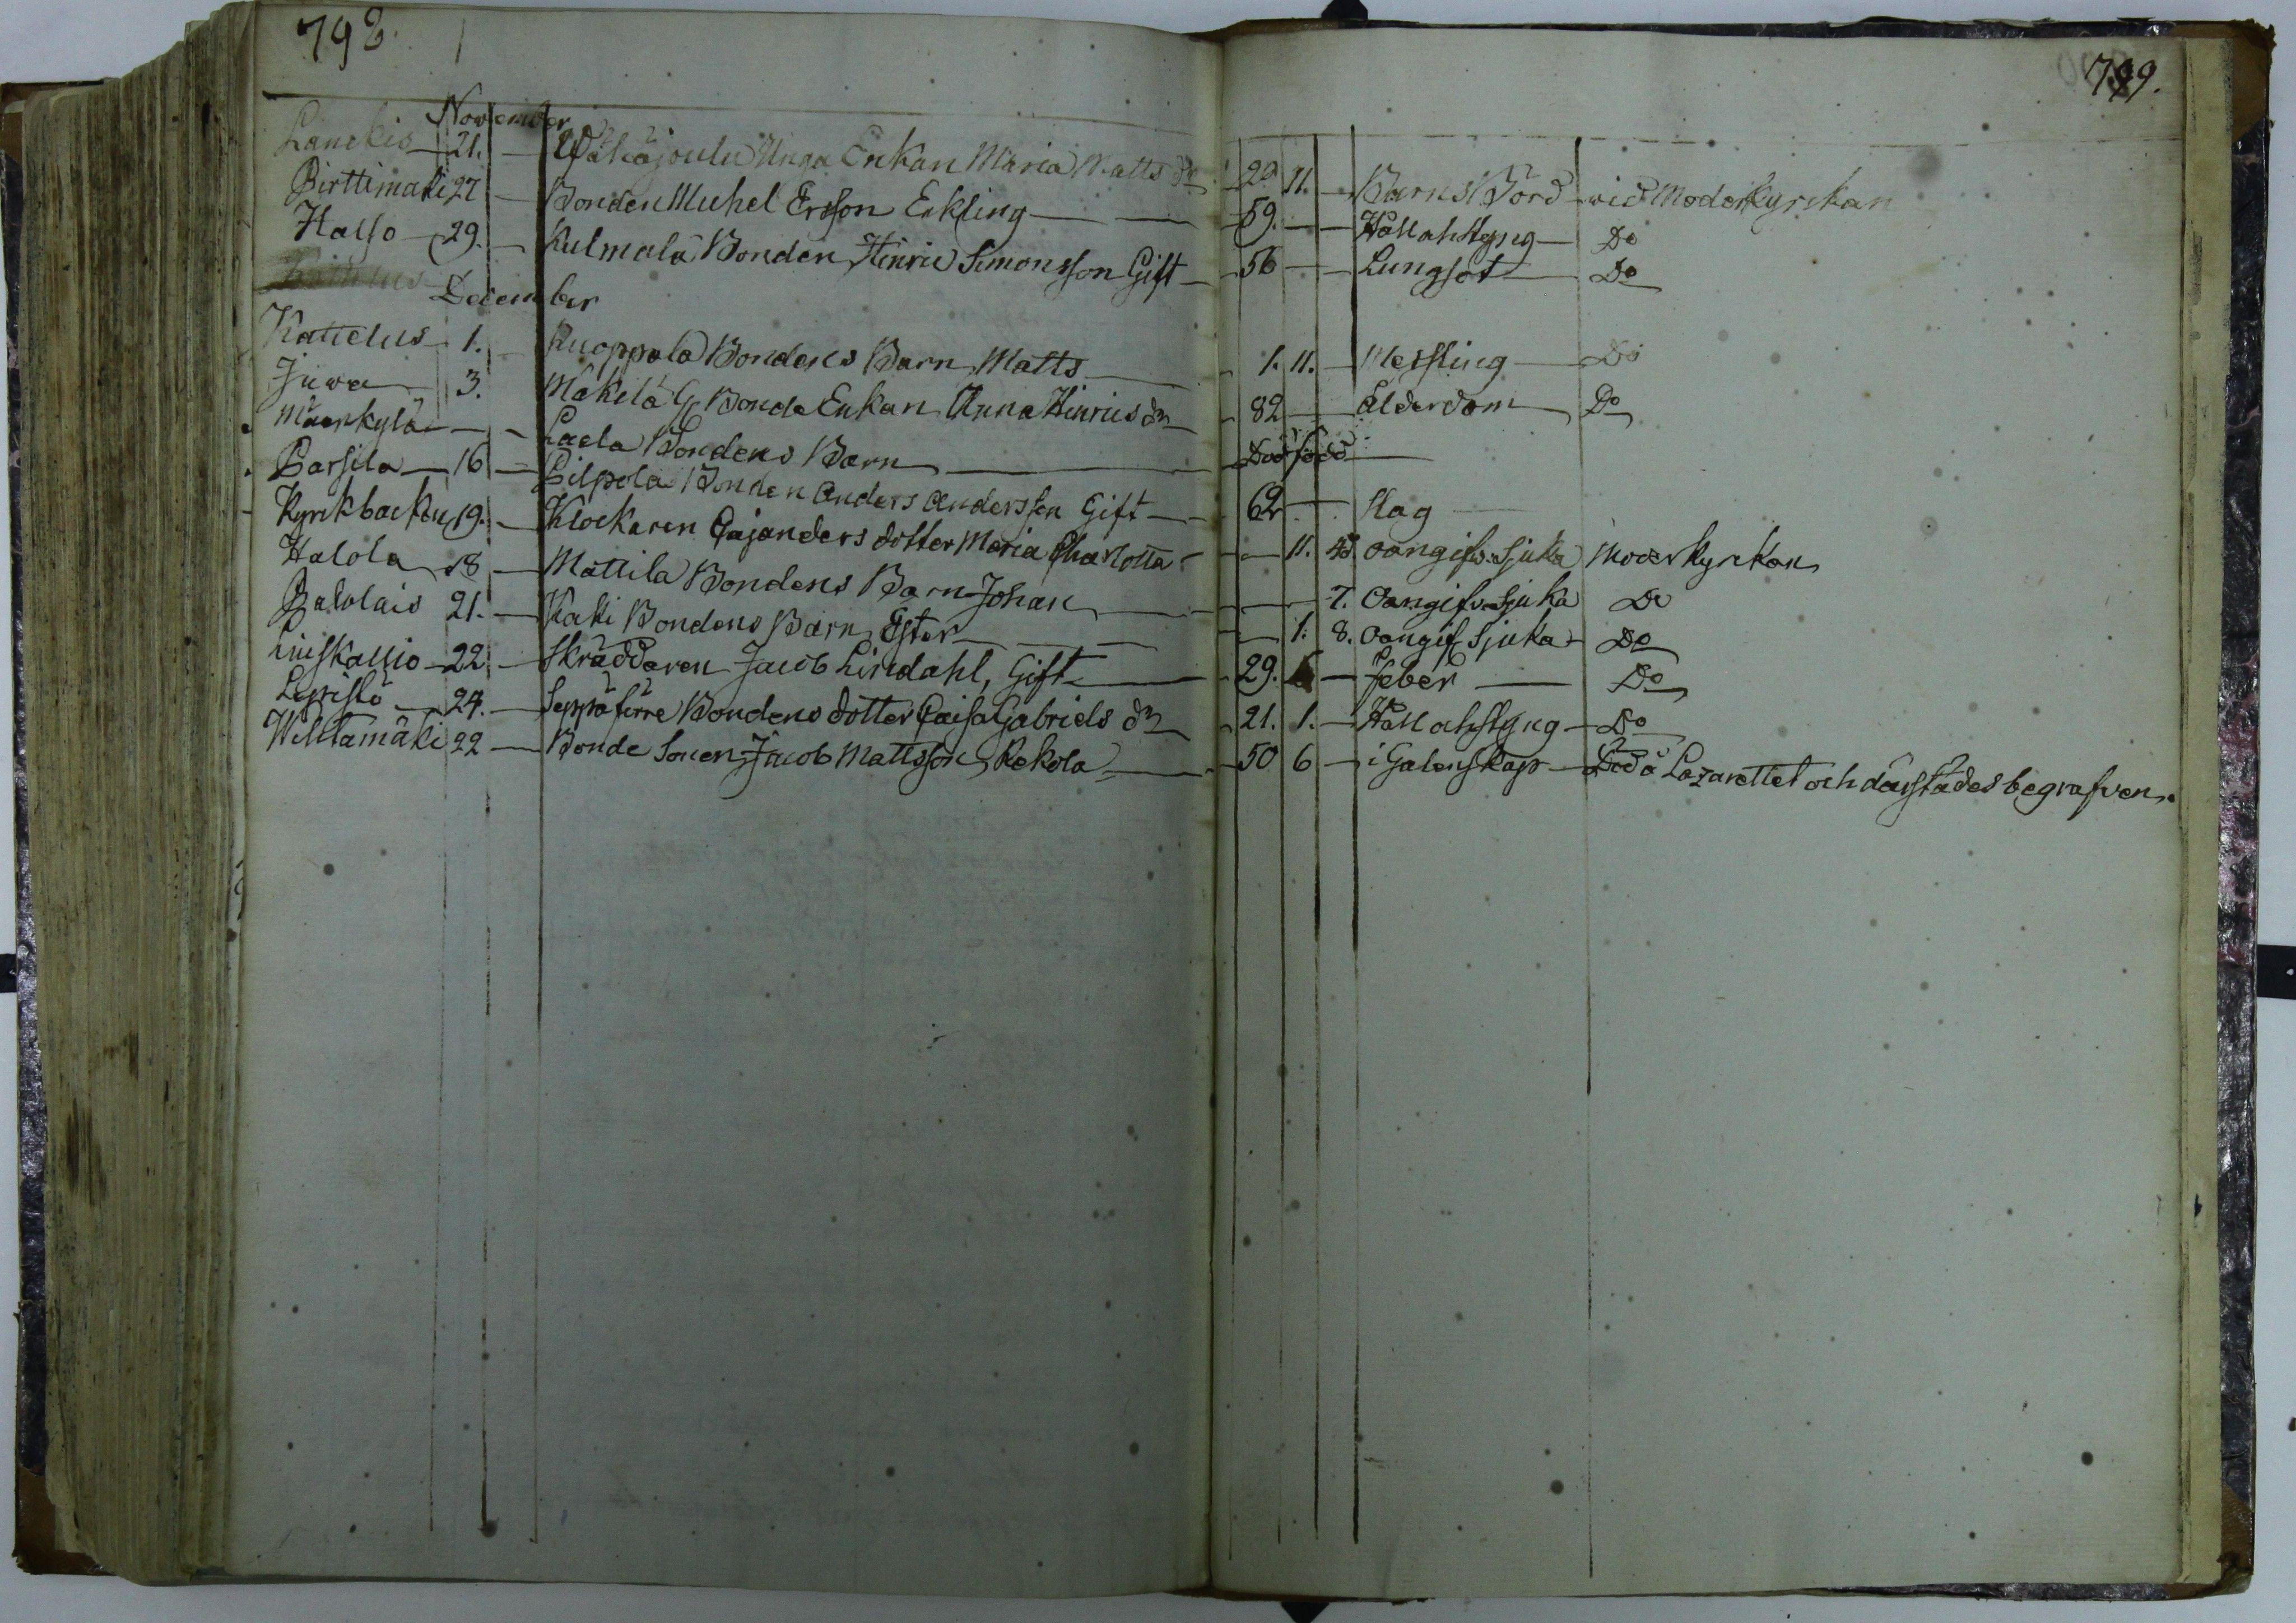 798.
799.
November
Lanckis 21. Wähäjoulu Unga Enkan Maria Matts dr 29 11. Barns Börd wid Moderkyrckan
Pirttimäki 27 Bonden Michel Ersson Eckling 59. Håll ah Styng Do
Halso 29. Kulmala Bonden Hinric Simonsson Gift 56 Lungsot Do
December
Kattelus 1. Kuoppala Bondens Barn Matts 1. 11. Messling Do
Juwa 3. Mäkilä G. Bonde Enkan Anna Hinrics dr 82 Ålderdom Do
Märrkylä Laela Bondens Barn Död född
Parsila 16 Pilpola Bonden Anders Andersson Gift 62 Slag
Kyrckbacken 19. Klockaren Cajanders dotter Maria Charlotta 11. oangifv. Sjuka Moderkyrckan
Halola 18 Mattila Bondens Barn Johan 7. Oangifv. Sjuka Do
21. Kaki Bondens Barn Ester 1. 8. Oangif Sjuka Do
22. Skräddaren Jacob Lindahl, Gift 29. feber Do
Lepistö 24. Bondens dotter Caisa Gabriels dr 21. 1. Håll ah Styng Do
22 Bonde Sonen Jacob Mattsson Kekola 50 6 i Galenskap Död å Lazarettet och därstädes begrafven.